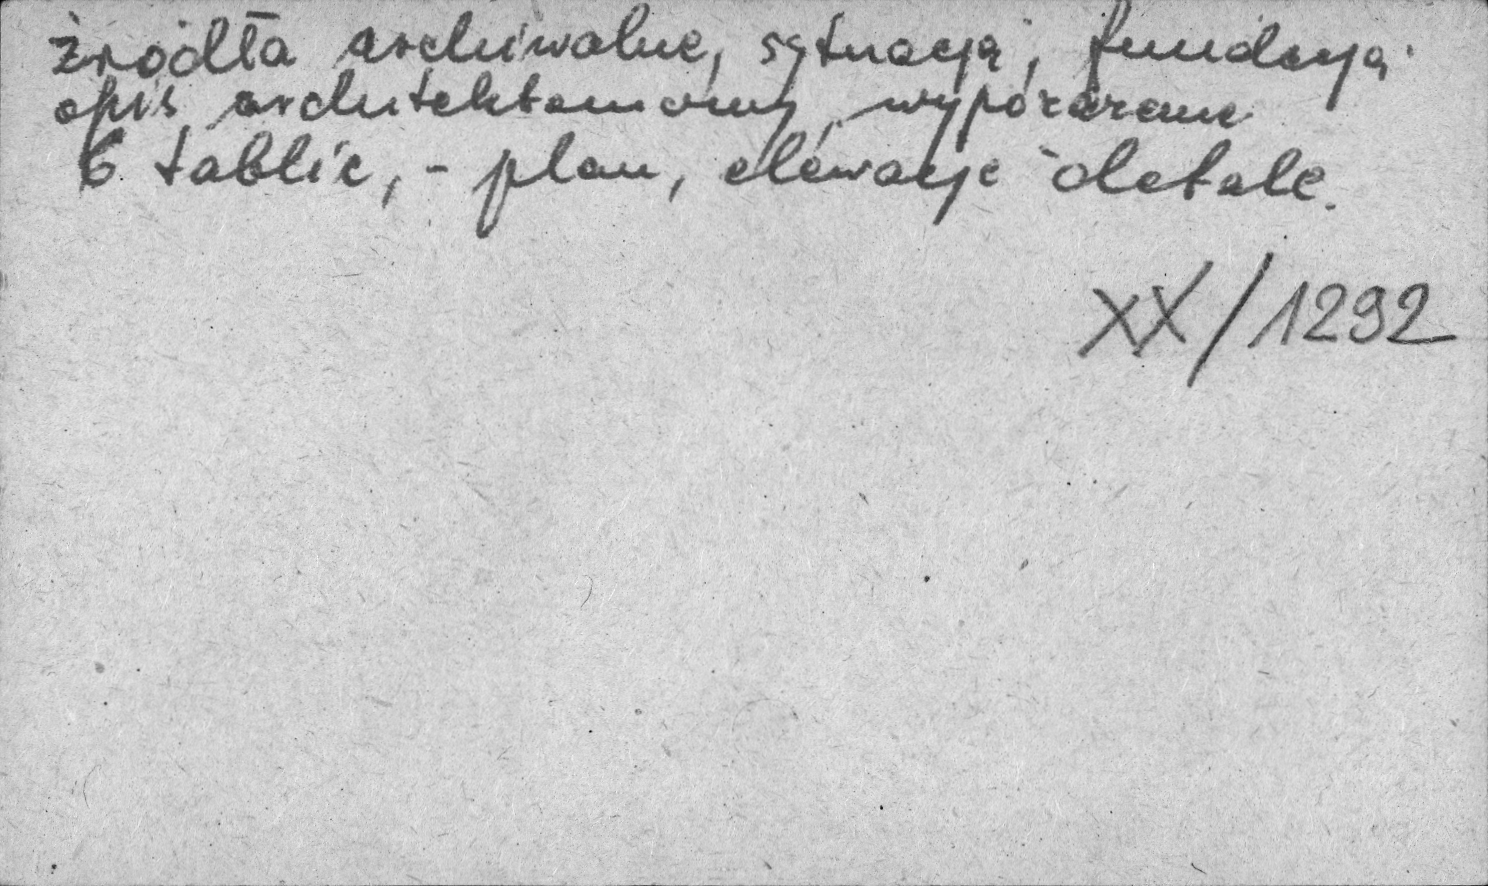 źródła archiwalne, sytuacja, fundacja
opis architektoniczny, wyposażenie
6 tablic, - plan, elewacje detale.
XX/1292